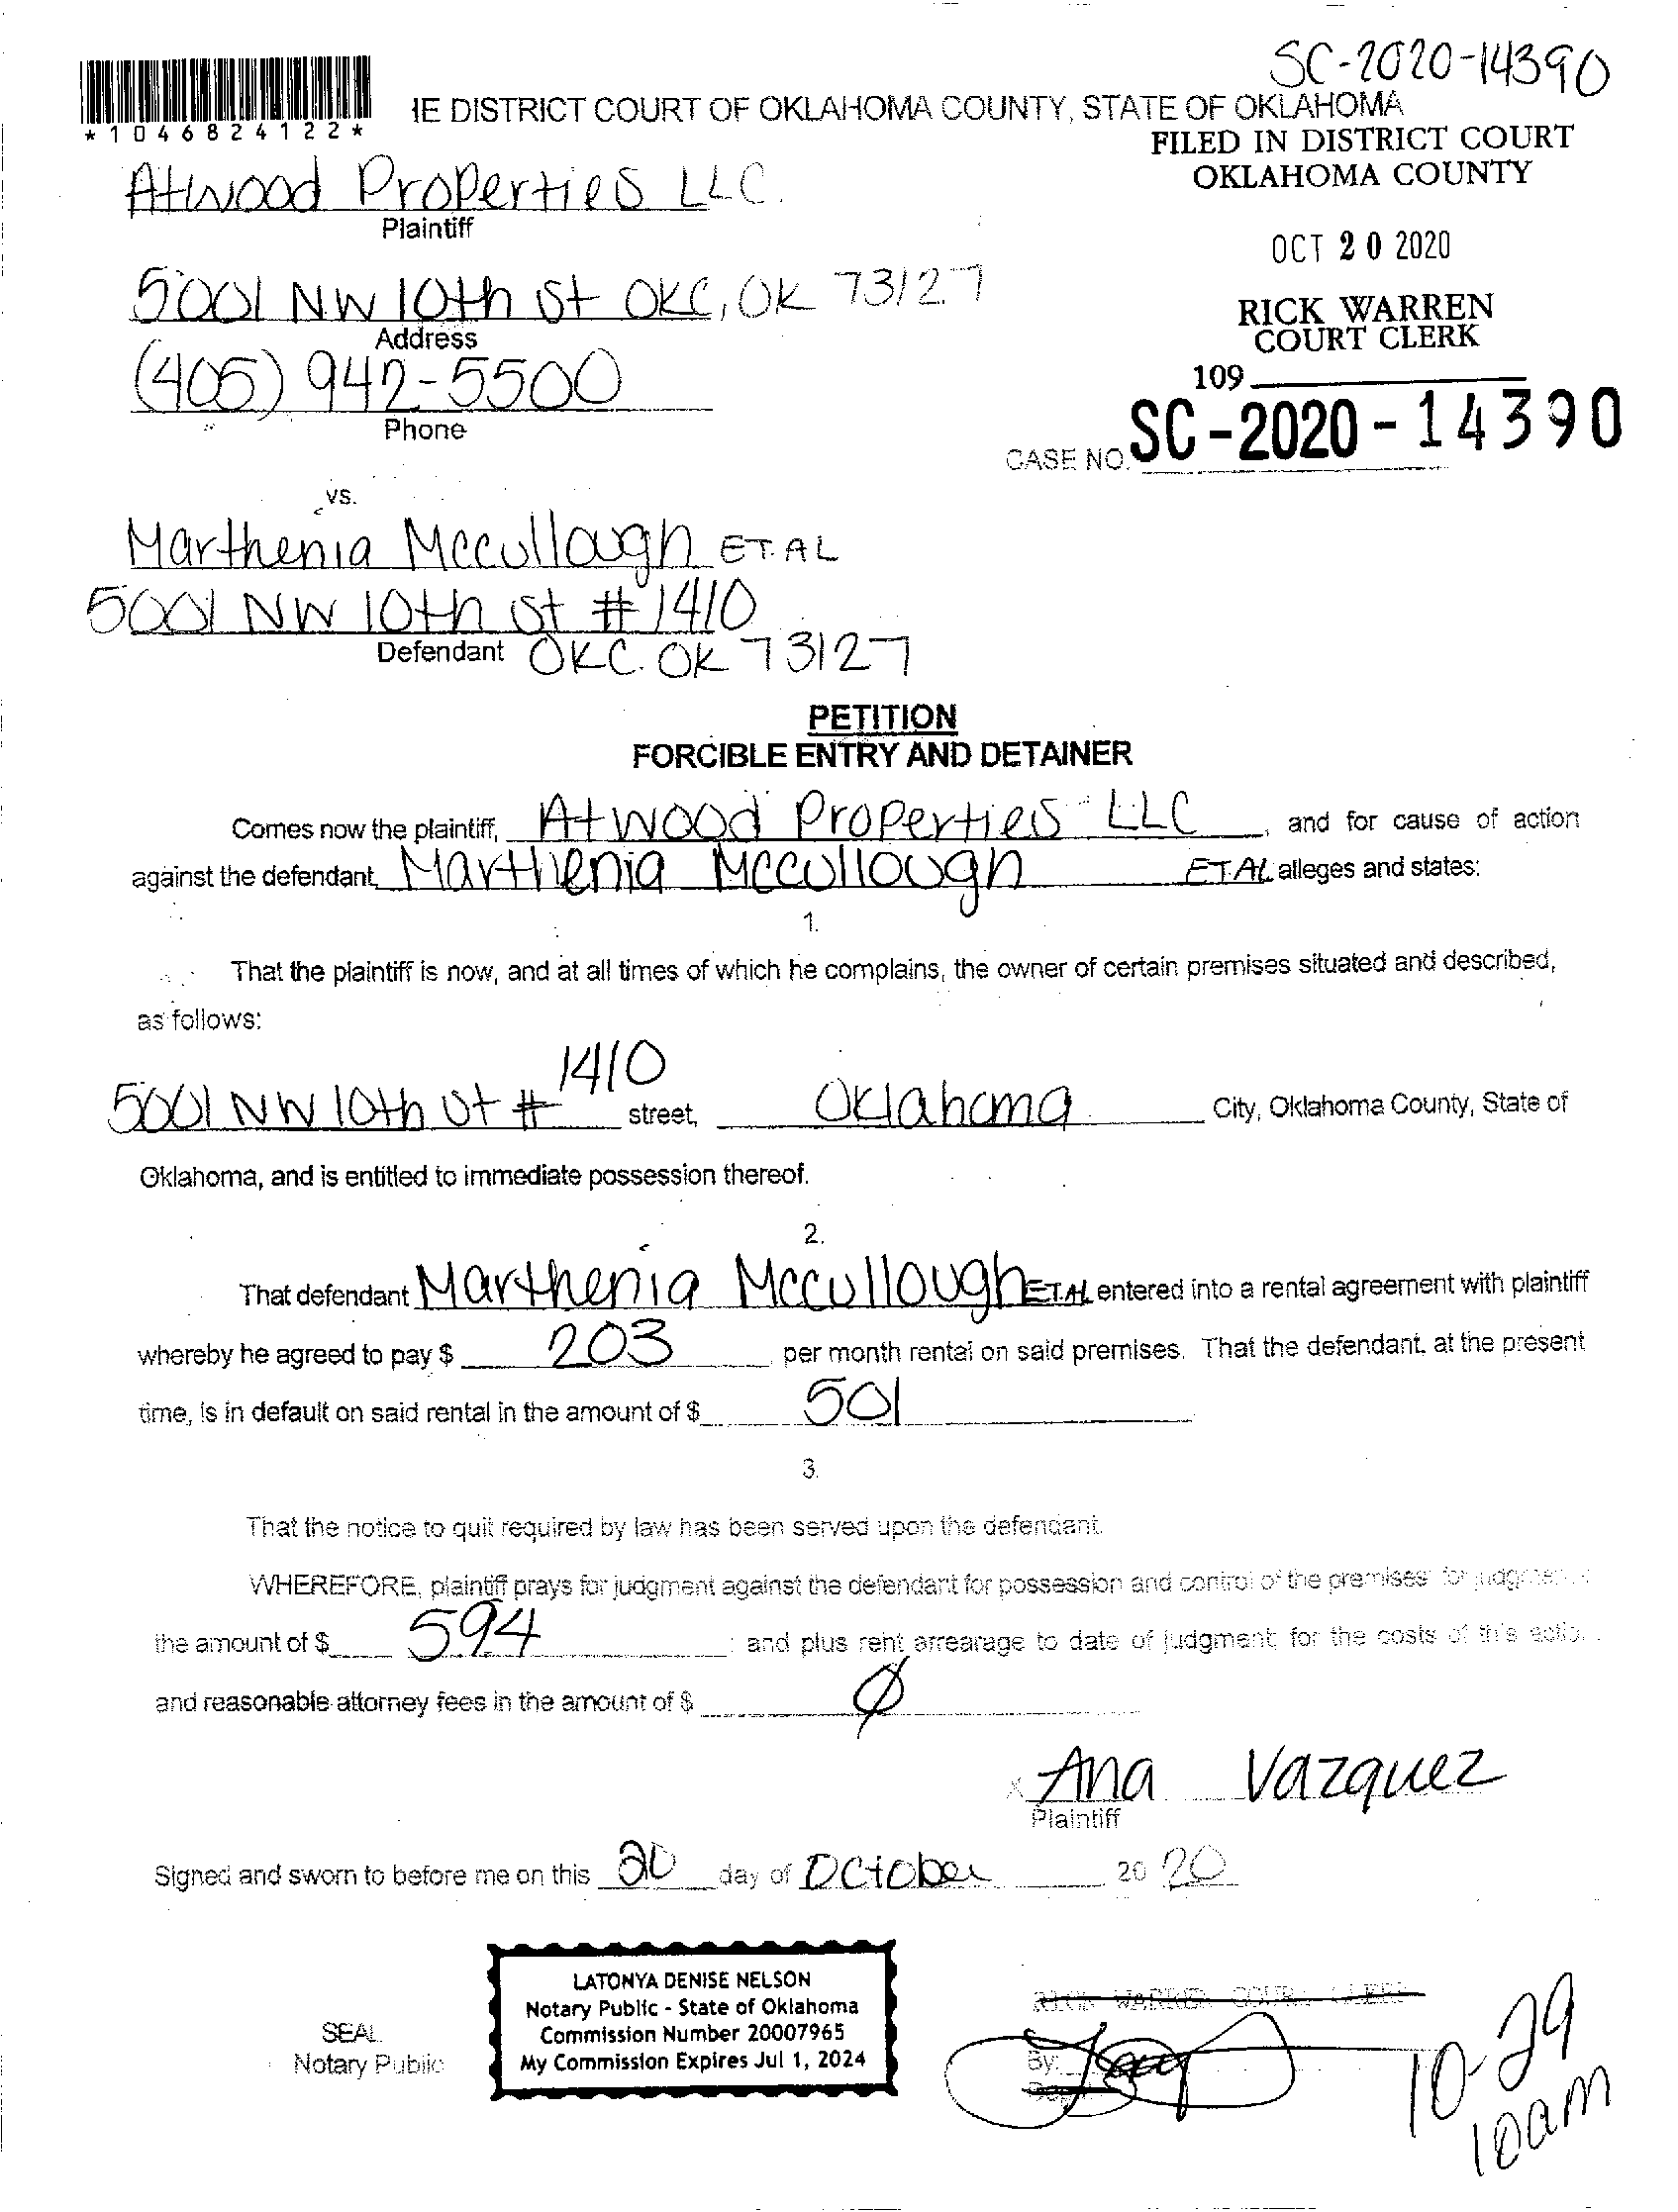 SC-2020-14390
*1046824122*
IE DISTRICT COURT OF OKLAHOMA COUNTY, STATE OF OKLAHOMA
FILED IN DISTRICT COURT
OKLAHOMA COUNTY
Atwood Properties LLC.
Plaintiff
OCT 20 2020
5001 NW 10th St OKC, OK 73127
Address
RICK WARREN
COURT CLERK
(405) 942-5500
Phone
109
CASE NO. SC-2020-14390
vs.
Marthenia Mccullough ET.AL
5001 NW 10th St # 1410
Defendant OKC. OK 73127
PETITION
FORCIBLE ENTRY AND DETAINER
Comes now the plaintiff, Atwood Properties LLC, and for cause of action
against the defendant, Marthenia Mccullough ET.AL alleges and states:
1.
That the plaintiff is now, and at all times of which he complains, the owner of certain premises situated and described,
as follows:
5001 NW 10th St # 1410 street, Oklahoma City, Oklahoma County, State of
Oklahoma, and is entitled to immediate possession thereof.
2.
That defendant Marthenia Mccullough ET.AL entered into a rental agreement with plaintiff
whereby he agreed to pay $ 203 per month rental on said premises. That the defendant, at the present
time, is in default on said rental in the amount of $ 501
3.
That the notice to quit required by law has been served upon the defendant.
WHEREFORE, plaintiff prays for judgment against the defendant for possession and control of the premises for
the amount of $ 594 ; and plus rent arrearage to date of judgment; for the costs of this
and reasonable attorney fees in the amount of $ ∅
x Ana Vazquez
Plaintiff
Signed and sworn to before me on this 20 day of October 20 20
LATONYA DENISE NELSON
Notary Public - State of Oklahoma
Commission Number 20007965
My Commission Expires Jul 1, 2024
SEAL
Notary Public
RICK WARREN COURT CLERK
By:
10-29
10am